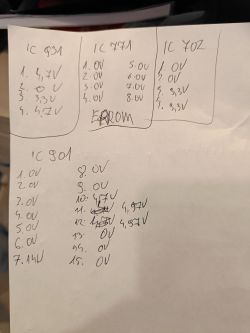 IC 931
1. 4,7V
2. 0V
3. 3,3V
4. 4,7V
IC 771
1. 0V 5. 0V
2. 0V 6. 0V
3. 0V 7. 0V
4. 0V 8. 0V
EEPROM
IC 702
1. 0V
2. 0V
3. 3,3V
4. 3,3V
IC 901
1. 0V
2. 0V
3. 0V
4. 0V
5. 0V
6. 0V
7. 14V
8. 0V
9. 0V
10. 4,7V
11. 4,97V
12. 4,97V
13. 0V
14. 0V
15. 0V